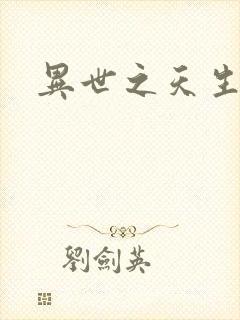 異世之天生
劉劍英